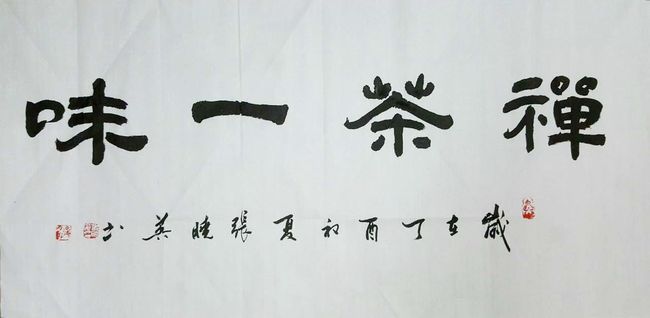 禪茶一味
歲在丁酉初夏張曉英书